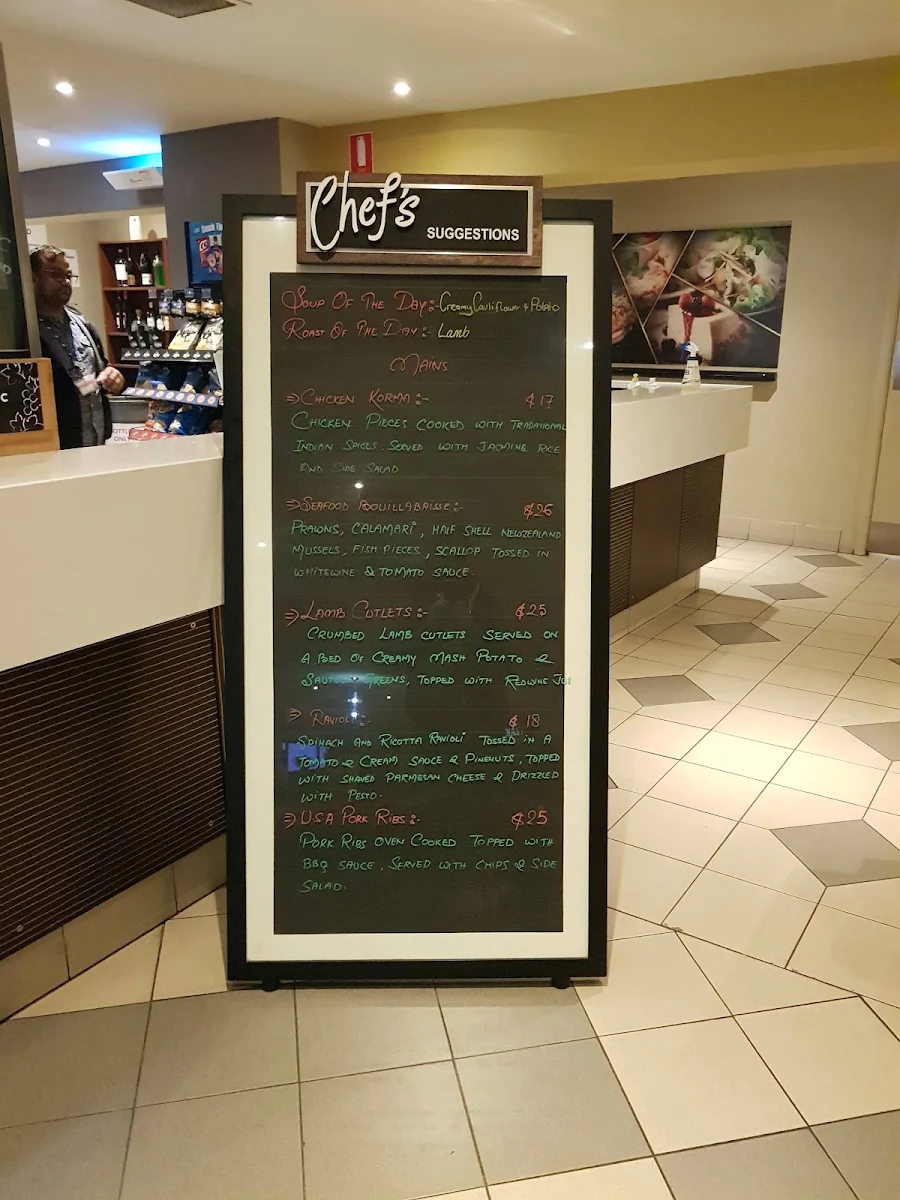 Chef's
SUGGESTIONS
SOUP OF THE DAY:- Creamy Cauliflower & Potato
ROAST OF THE DAY:- Lamb
MAINS
⇒ CHICKEN KORMA :- $17
CHICKEN PIECES COOKED WITH TRADITIONAL
INDIAN SPICES. SERVED WITH JASMINE RICE
AND SIDE SALAD
⇒ SEAFOOD BOUILLABAISSE:- $26
PRAWNS, CALAMARI, HALF SHELL NEWZEALAND
MUSSELS, FISH PIECES, SCALLOP TOSSED IN
WHITEWINE & TOMATO SAUCE.
⇒ LAMB CUTLETS:- $25
CRUMBED LAMB CUTLETS SERVED ON
A BED OF CREAMY MASH POTATO &
GREENS, TOPPED WITH REDWINE JUS
⇒ RAVIOLI :- $18
SPINACH AND RICOTTA RAVIOLI TOSSED IN A
TOMATO & CREAM SAUCE & PINENUTS, TOPPED
WITH SHAVED PARMESAN CHEESE & DRIZZLED
WITH PESTO.
⇒ USA PORK RIBS:- $25
PORK RIBS OVEN COOKED TOPPED WITH
BBQ SAUCE, SERVED WITH CHIPS & SIDE
SALAD.